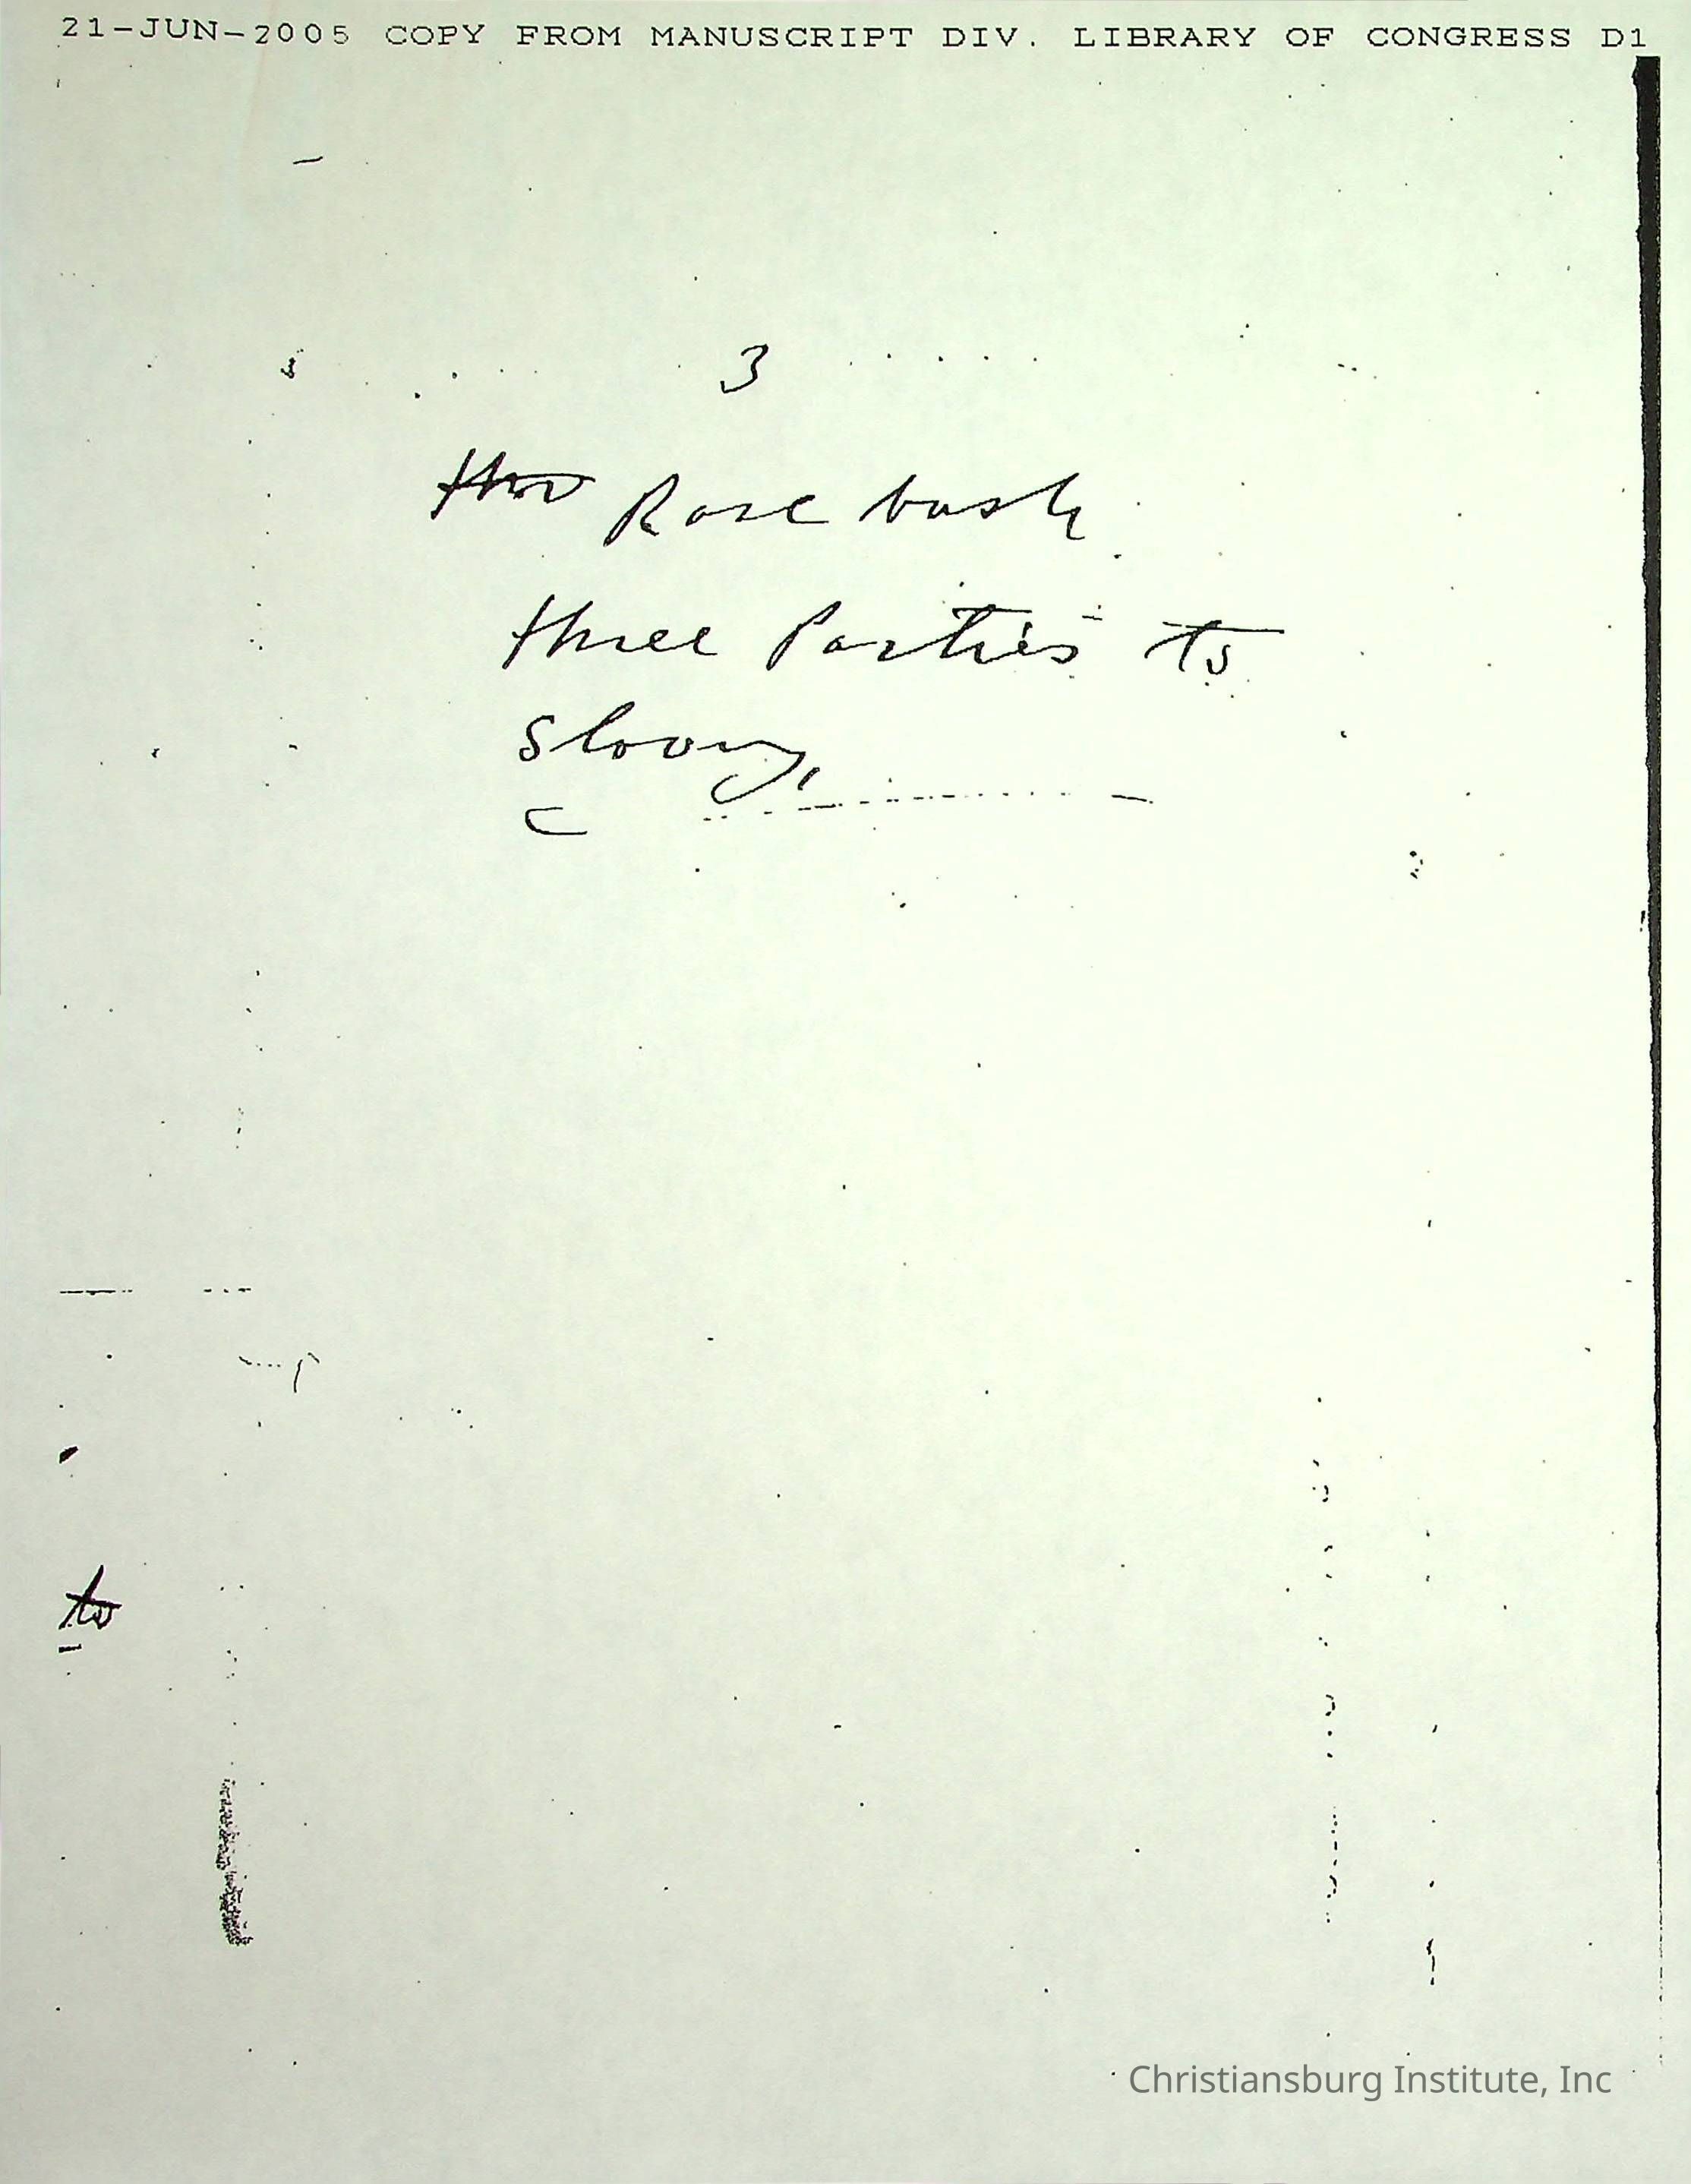 21-JUN-2005 COPY FROM MANUSCRIPT DIV. LIBRARY OF CONGRESS D1
3
Rose bush
three Parties to
slavery,
to
Christiansburg Institute, Inc